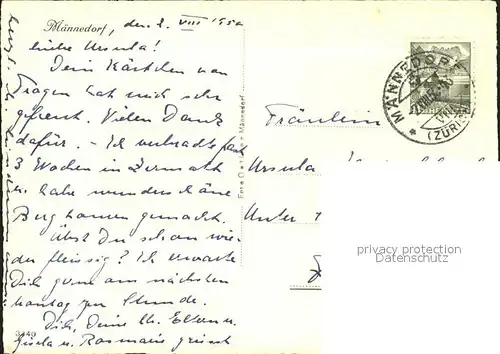 Männedorf, den 2. VIII 1950
Liebe Ursula!
Dein Kärtchen von
Tragen hat mich sehr
gefreut. Vielen Dank
dafür. - Ich verbrachte fast
3 Wochen in Zermatt
u. habe wunderschöne
Bergtouren gemacht.
Übst Du schon wie-
der fleissig? Ich erwarte
Dich gern am nächsten
Montag zur Stunde.
Dich, Deine lb. Eltern u.
Gisela u. Rosmarie grüsst
3449
MÄNNEDORF
(ZÜRICH)
Fräulein
Ursula
Unter
privacy protection
Datenschutz